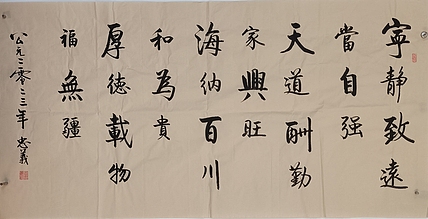 寧靜致遠
當自强
天道酬勤
家興旺
海納百川
和為貴
厚德載物
福無疆
公元二零二三年 忠義